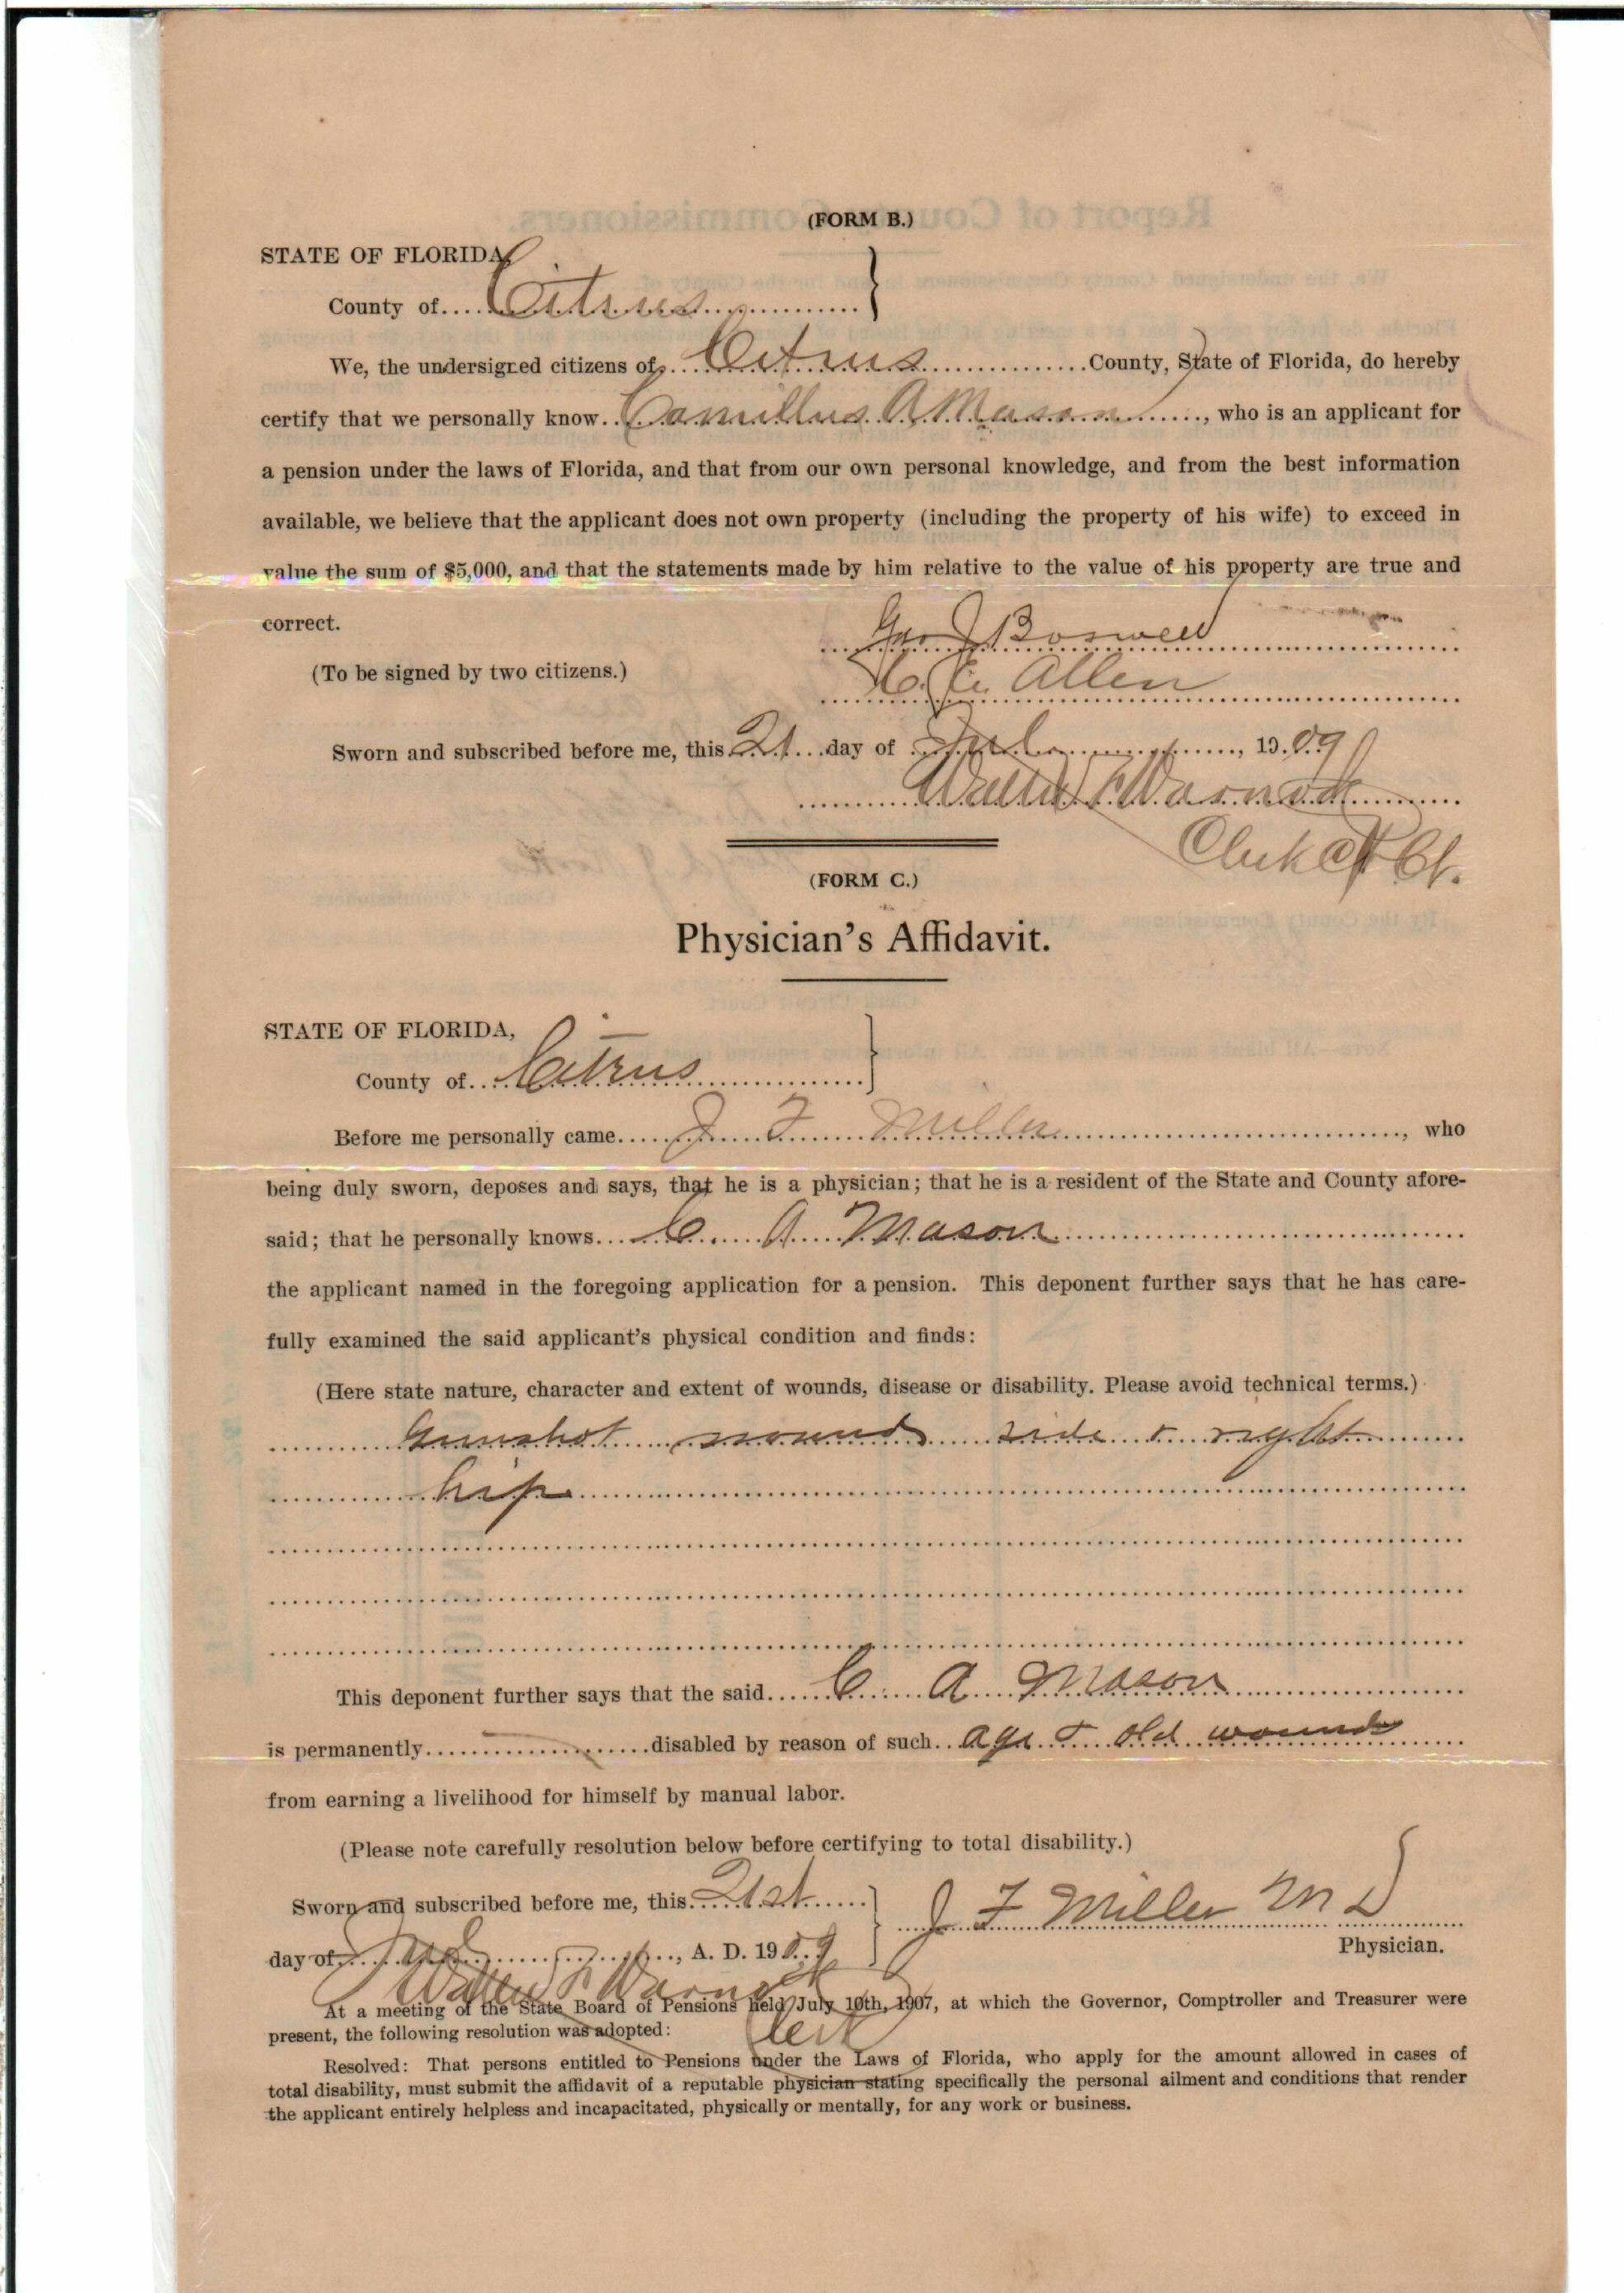 (FORM B.)
STATE OF FLORIDA,
County of Citrus
We, the undersigned citizens of Citrus County, State of Florida, do hereby
certify that we personally know Camillus A Mason, who is an applicant for
a pension under the laws of Florida, and that from our own personal knowledge, and from the best information
available, we believe that the applicant does not own property (including the property of his wife) to exceed in
value the sum of $5,000, and that the statements made by him relative to the value of his property are true and
correct.
Geo J Boswell
(To be signed by two citizens.)
Allen
Sworn and subscribed before me, this 21 day of July, 1909
Walter F Warnock
Clerk Ct Ct.
(FORM C.)
Physician's Affidavit.
STATE OF FLORIDA,
County of Citrus
Before me personally came J F Miller, who
being duly sworn, deposes and says, that he is a physician; that he is a resident of the State and County afore-
said; that he personally knows C A Mason
the applicant named in the foregoing application for a pension. This deponent further says that he has care-
fully examined the said applicant's physical condition and finds:
(Here state nature, character and extent of wounds, disease or disability. Please avoid technical terms.)
Gunshot wound side & right
hip
This deponent further says that the said C A Mason
is permanently disabled by reason of such age & old wounds
from earning a livelihood for himself by manual labor.
(Please note carefully resolution below before certifying to total disability.)
Sworn and subscribed before me, this 21st
J F Miller M D
day of July, A. D. 1909
Physician.
Walter F Warnock
At a meeting of the State Board of Pensions held July 10th, 1907, at which the Governor, Comptroller and Treasurer were
present, the following resolution was adopted:
Clerk
Resolved: That persons entitled to Pensions under the Laws of Florida, who apply for the amount allowed in cases of
total disability, must submit the affidavit of a reputable physician stating specifically the personal ailment and conditions that render
the applicant entirely helpless and incapacitated, physically or mentally, for any work or business.